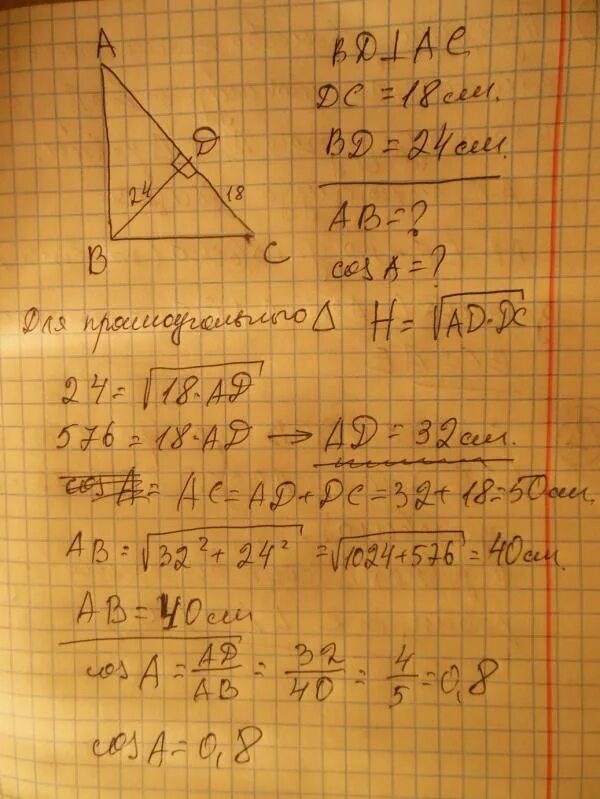 A
D
24
18
B
C
BD⊥AC
DC = 18см.
BD = 24см.
AB = ?
cos A = ?
Для прямоугольного Δ H = √AD·DC
24 = √18·AD
576 = 18·AD → AD = 32см.
cos A = AC = AD + DC = 32 + 18 = 50см.
AB = √32² + 24² = √1024 + 576 = 40см.
AB = 40см
cos A = AD/AB = 32/40 = 4/5 = 0,8
cos A = 0,8